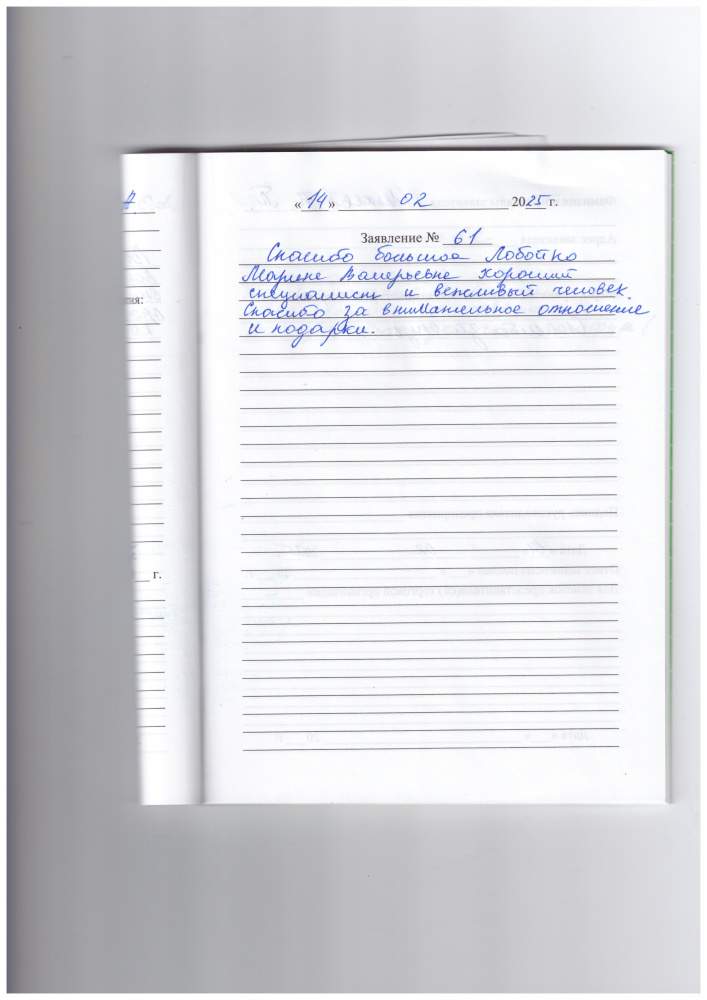 «14» 02 2025 г.
Заявление № 61
Спасибо большое Лобойко
Марине Валерьевне хороший
специалист и вежливый человек.
Спасибо за внимательное отношение
и подарки.
ия:
г.